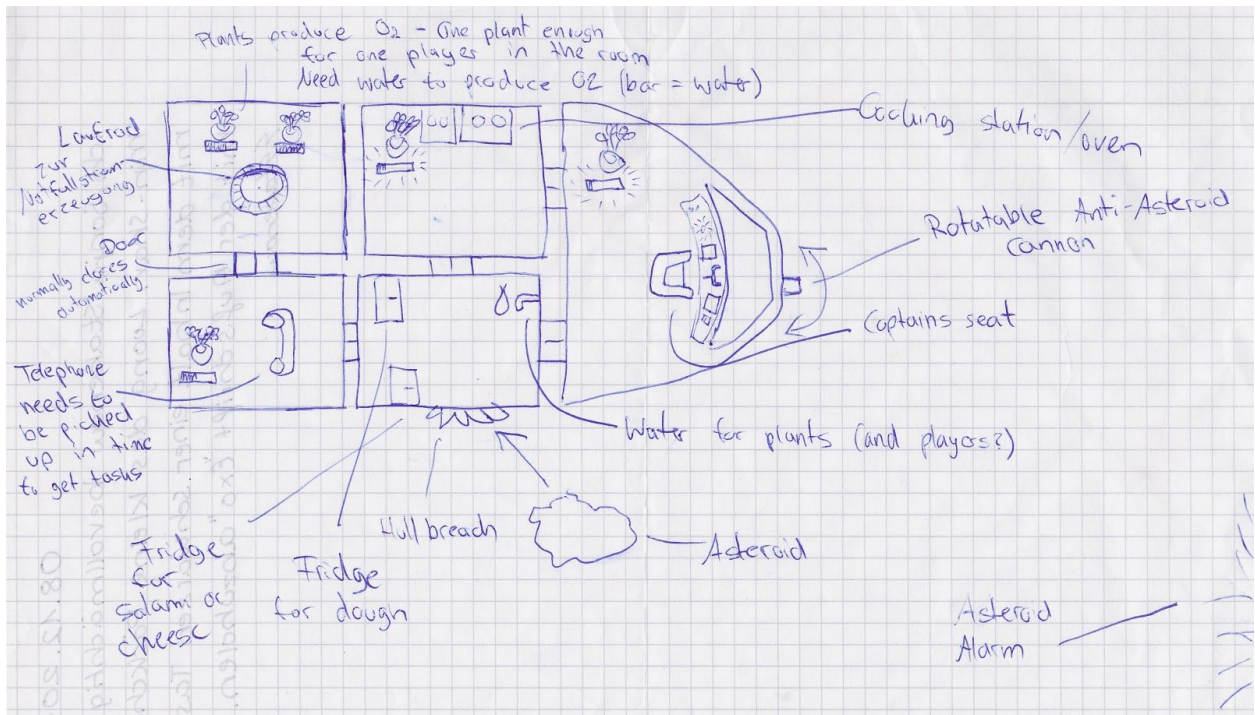 Plants produce O2 - One plant enough
for one player in the room
Need water to produce O2 (bar = water)
Laufrad
zur
Notfallstrom
erzeugung
Door
normally closes
automatically.
Telephone
needs to
be picked
up in time
to get tasks
Cooking station/oven
Rotatable Anti-Asteroid
cannon
Captains seat
Water for plants (and players?)
Hull breach
Asteroid
Fridge
for
salami or
cheese
Fridge
for dough
Asteroid
Alarm
08.12.20